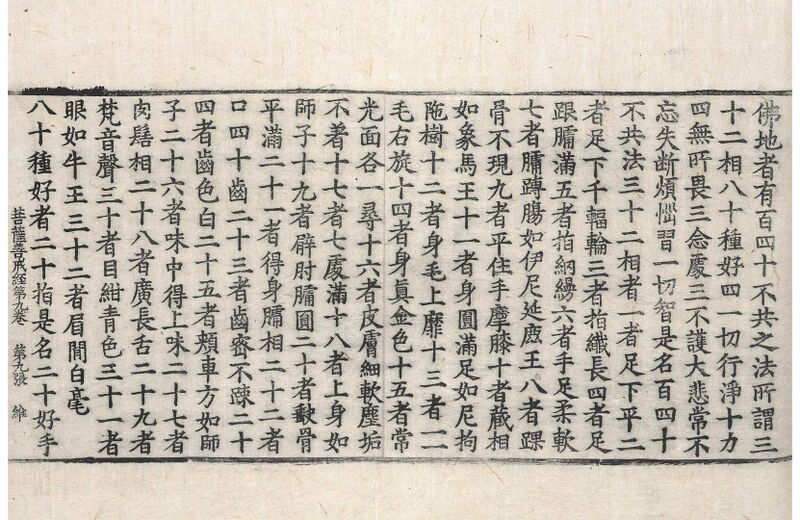 佛地者有百四十不共之法所謂三
十二相八十種好四一切行淨十力
四無所畏三念處三不護大悲常不
忘失斷煩惱習一切智是名百四十
不共法三十二相者一者足下平二
者足下千輻輪三者指纖長四者足
跟𦟛滿五者指網縵六者手足柔軟
七者𦟛蹲膓如伊尼延鹿王八者踝
骨不現九者平住手摩膝十者藏相
如象馬王十一者身圓滿足如尼拘
陁樹十二者身毛上靡十三者一一
毛右旋十四者身真金色十五者常
光面各一尋十六者皮膚細軟塵垢
不著十七者七處滿十八者上身如
師子十九者臂肘𦟛圓二十者𩨗骨
平滿二十一者得身𦟛相二十二者
口四十齒二十三者齒密不踈二十
四者齒色白二十五者頰車方如師
子二十六者味中得上味二十七者
肉髻相二十八者廣長舌二十九者
梵音聲三十者目紺青色三十一者
眼如牛王三十二者眉間白毫
八十種好者二十指是名二十好手
菩薩善戒経第九卷　第九張　維